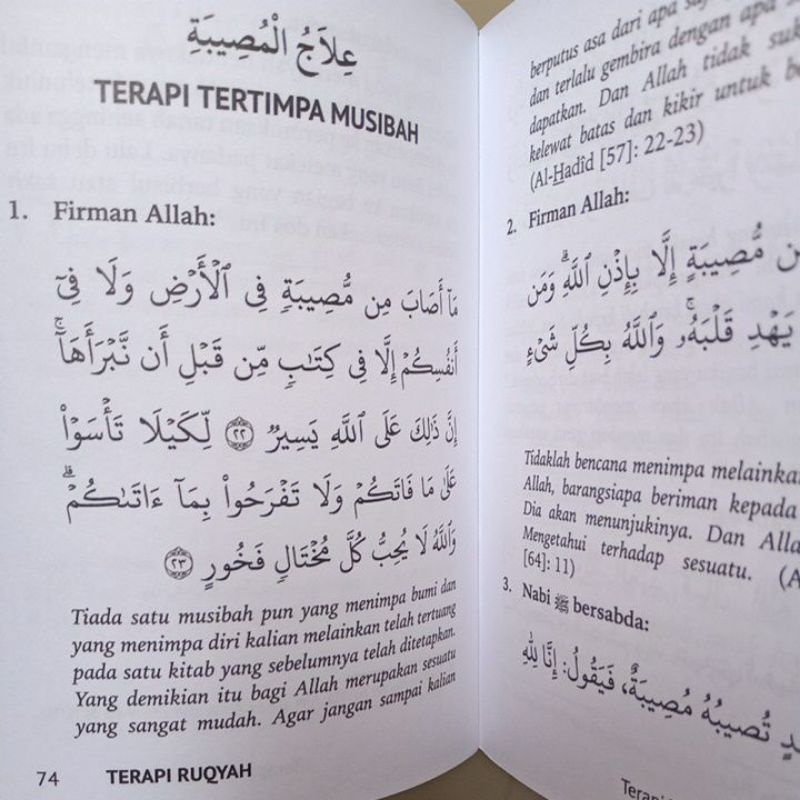 عِلَاجُ الْمُصِيبَةِ
TERAPI TERTIMPA MUSIBAH
1. Firman Allah:
مَآ أَصَابَ مِن مُّصِيبَةٍ فِى ٱلْأَرْضِ وَلَا فِىٓ
أَنفُسِكُمْ إِلَّا فِى كِتَٰبٍ مِّن قَبْلِ أَن نَّبْرَأَهَآ ۚ
إِنَّ ذَٰلِكَ عَلَى ٱللَّهِ يَسِيرٌ ٢٢ لِّكَيْلَا تَأْسَوْا۟
عَلَىٰ مَا فَاتَكُمْ وَلَا تَفْرَحُوا۟ بِمَآ ءَاتَىٰكُمْ ۗ
وَٱللَّهُ لَا يُحِبُّ كُلَّ مُخْتَالٍ فَخُورٍ ٢٣
Tiada satu musibah pun yang menimpa bumi dan
yang menimpa diri kalian melainkan telah tertuang
pada satu kitab yang sebelumnya telah ditetapkan.
Yang demikian itu bagi Allah merupakan sesuatu
yang sangat mudah. Agar jangan sampai kalian
74 TERAPI RUQYAH
berputus asa dari apa
dan terlalu gembira dengan apa
dapatkan. Dan Allah tidak
kelewat batas dan kikir untuk
(Al-Hadîd [57]: 22-23)
2. Firman Allah:
مُّصِيبَةٍ إِلَّا بِإِذْنِ ٱللَّهِ ۗ وَمَن
يَهْدِ قَلْبَهُۥ ۚ وَٱللَّهُ بِكُلِّ شَىْءٍ
Tidaklah bencana menimpa melainkan
Allah, barangsiapa beriman kepada
Dia akan menunjukinya. Dan
Mengetahui terhadap sesuatu.
[64]: 11)
3. Nabi ﷺ bersabda:
تُصِيبُهُ مُصِيبَةٌ، فَيَقُولُ: إِنَّا لِلَّهِ